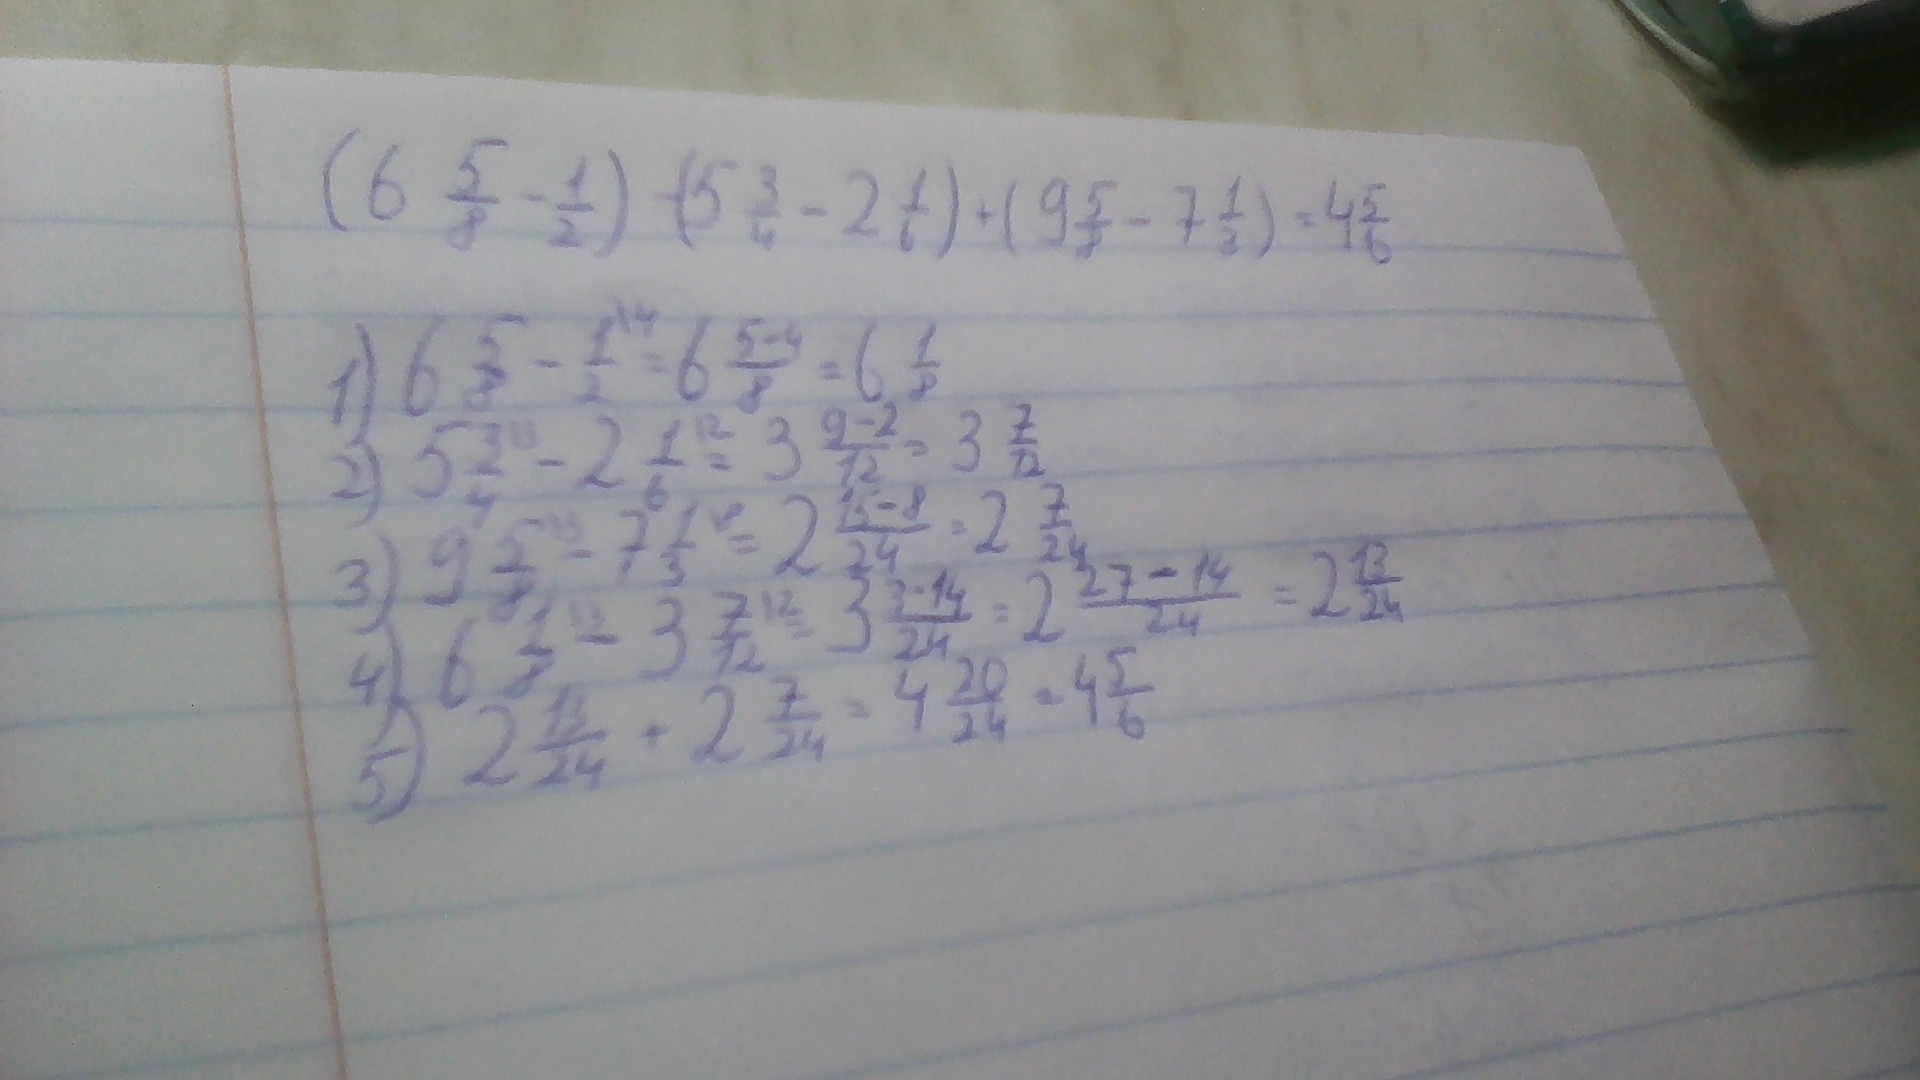 (6 5/8 - 1/2) - (5 3/4 - 2 1/6) + (9 5/8 - 7 1/3) = 4 5/6
1) 6 5/8 - 1/2 \4 = 6 5-4/8 = 6 1/8
2) 5 3/4 \3 - 2 1/6 \2 = 3 9-2/12 = 3 7/12
3) 9 5/8 \3 - 7 1/3 \8 = 2 15-8/24 = 2 7/24
4) 6 1/8 \3 - 3 7/12 \2 = 3 3-14/24 = 2 27-14/24 = 2 13/24
5) 2 13/24 + 2 7/24 = 4 20/24 = 4 5/6